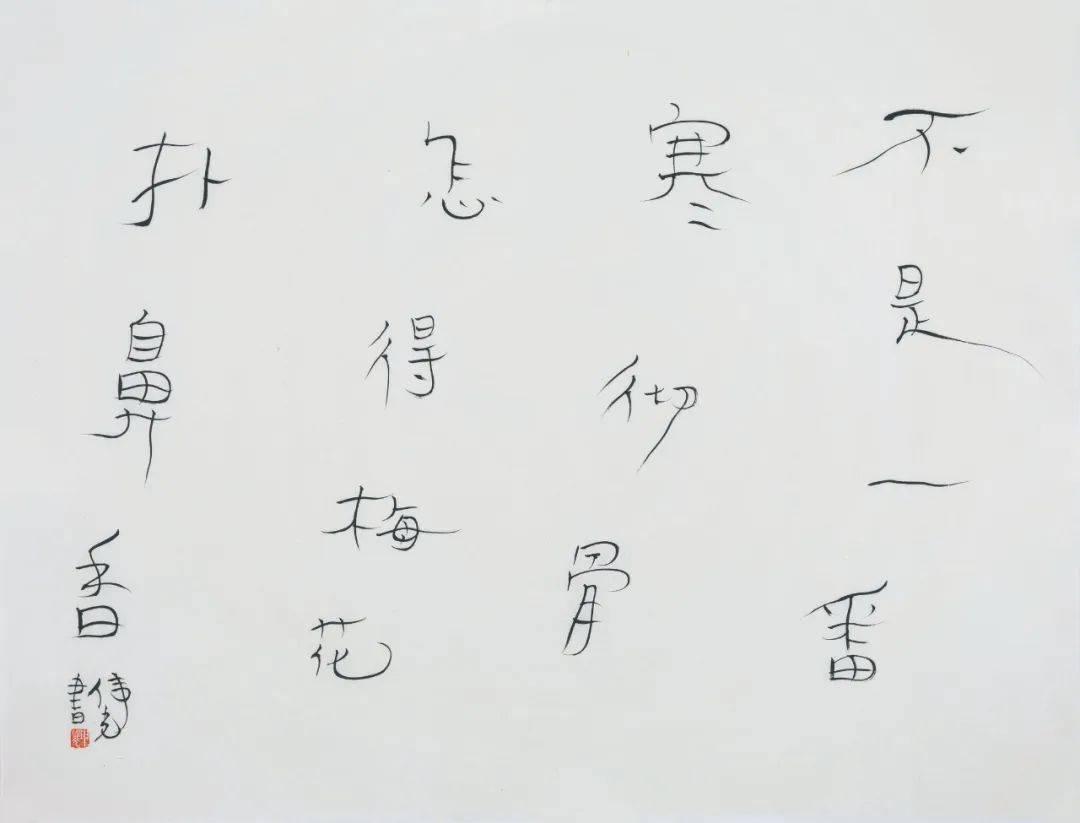 不是一番
寒彻骨
怎得梅花
扑鼻香
書